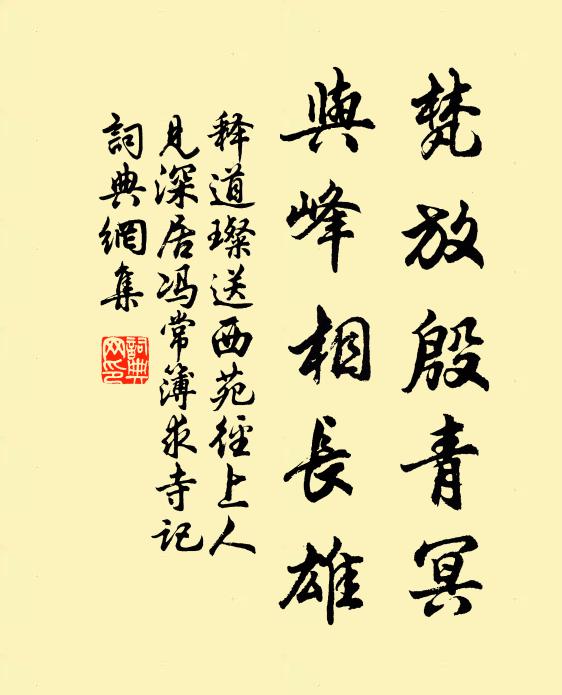 梵放殷青冥
與峰相長雄
释道璨送西苑徑上人
見深居冯常簿求寺記
詞典網集
詞典
网印